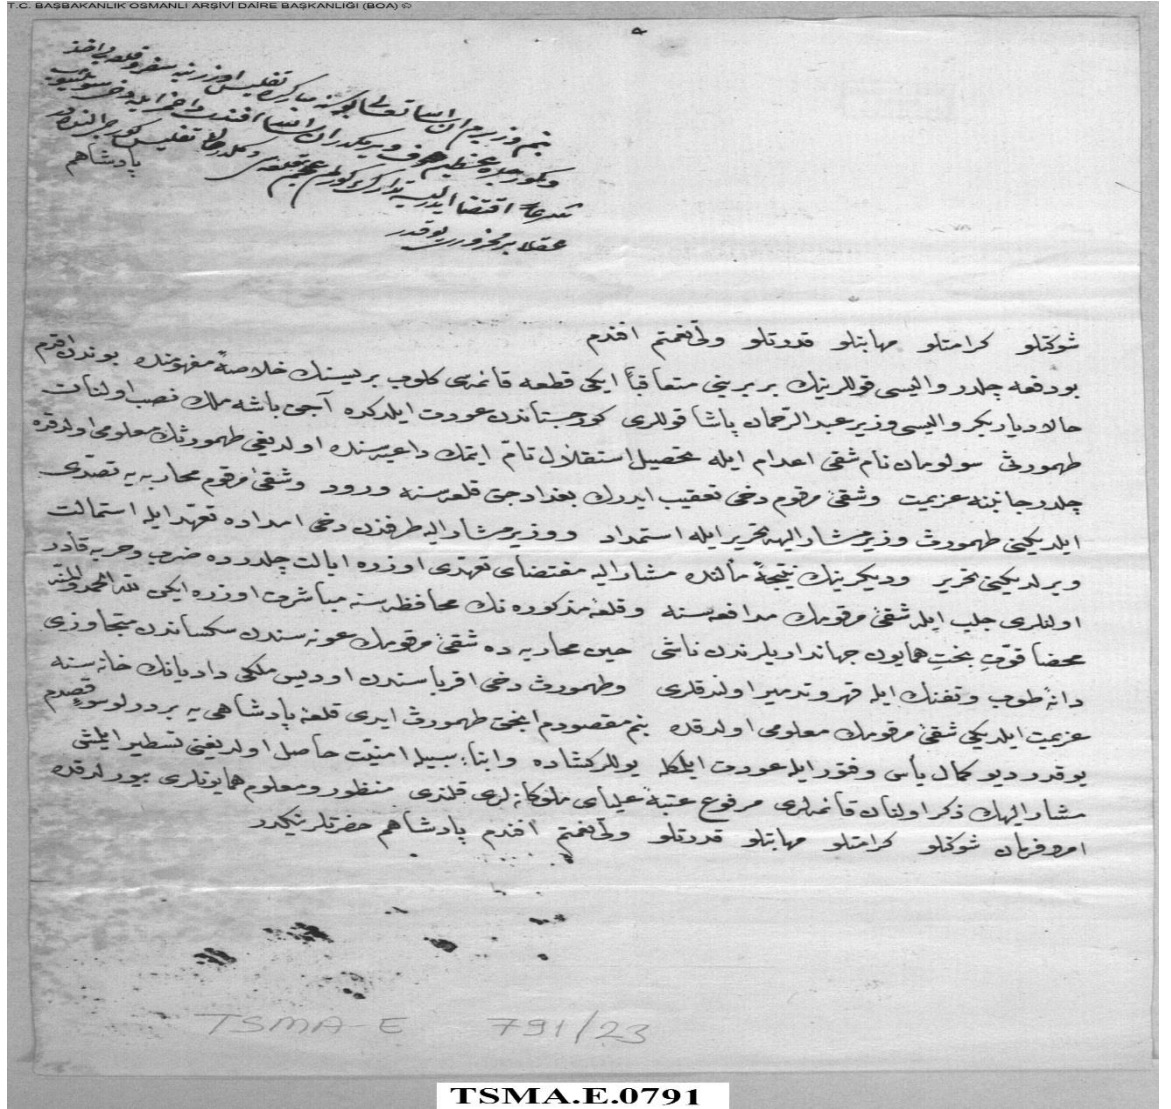 T.C. BAŞBAKANLIK OSMANLI ARŞİVİ DAİRE BAŞKANLIĞI (BOA) ©
بنم وزیرم ان شاء الله تعالی بو سنه مبارکده تفلیس اوزرینه سفر و قلعه یی اخذ
پادشاهم
عقلا بر محذوری یوقدر
شوکتلو کرامتلو مهابتلو قدرتلو ولی نعمتم افندم
بو دفعه چلدر والیسی قوللرینك بربرینی متعاقبا ایکی قطعه قائمه سی کلوب بریسنك خلاصهٔ مفهومنده بوندن اقدم
حالا دیاربکر والیسی وزیر عبدالرحمان پاشا قوللری کورجستاندن عودت ایلدکده آجق باشه ملك نصب اولنان
طهمورث سولومان نام شقی اعدام ایله تحصیل استقلال تام ایتمك داعیه سنده اولدیغی طهمورثك معلومی اولدقده
چلدر جانبنه عزیمت و شقی مرقوم دخی تعقیب ایدرك بغدادجق قلعه سنه ورود و شقیٔ مرقوم محاربه یه تصدی
ایلدیکنی طهمورث وزیر مشار الیهه تحریر ایله استمداد و وزیر مشار الیه طرفندن دخی امداده تعهد ایله استمالت
ویرلدیکی تحریر و دیکرینك نتیجهٔ مآلنده مشار الیه مقتضای تعهدی اوزره ایالت چلدرده ضرب و حربه قادر
اولنلری جلب ایله شقیٔ مرقومك مدافعه سنه و قلعهٔ مذکوره نك محافظه سنه مباشرت اوزره ایکن لله الحمد والمنه
محضا قوت بخت همایون جهانداریلرندن ناشی حین محاربه ده شقیٔ مرقومك عونه سندن سکساندن متجاوزی
دانهٔ طوب و تفنك ایله قهر و تدمیر اولندقلری و طهمورث دخی اقرباسندن اولدیس ملکی دادیانك خانه سنه
عزیمت ایلدیکی شقیٔ مرقومك معلومی اولدقده بنم مقصودم انجق طهمورث ایدی قلعهٔ پادشاهی یه بر درلو سوء قصدم
یوقدر دیو کمال یأس و فتور ایله عودت ایلمکله یوللر کشاده و ابناء سبیله امنیت حاصل اولدیغنی تسطیر ایلمش
مشار الیهك ذکر اولنان قائمه لری مرفوع عتبهٔ علیای ملوکانه لری قلندی منظور و معلوم همایونلری بیورلدقده
امر و فرمان شوکتلو کرامتلو مهابتلو قدرتلو ولی نعمتم افندم پادشاهم حضرتلرینکدر
TSMA-E 791/23
TSMA.E.0791